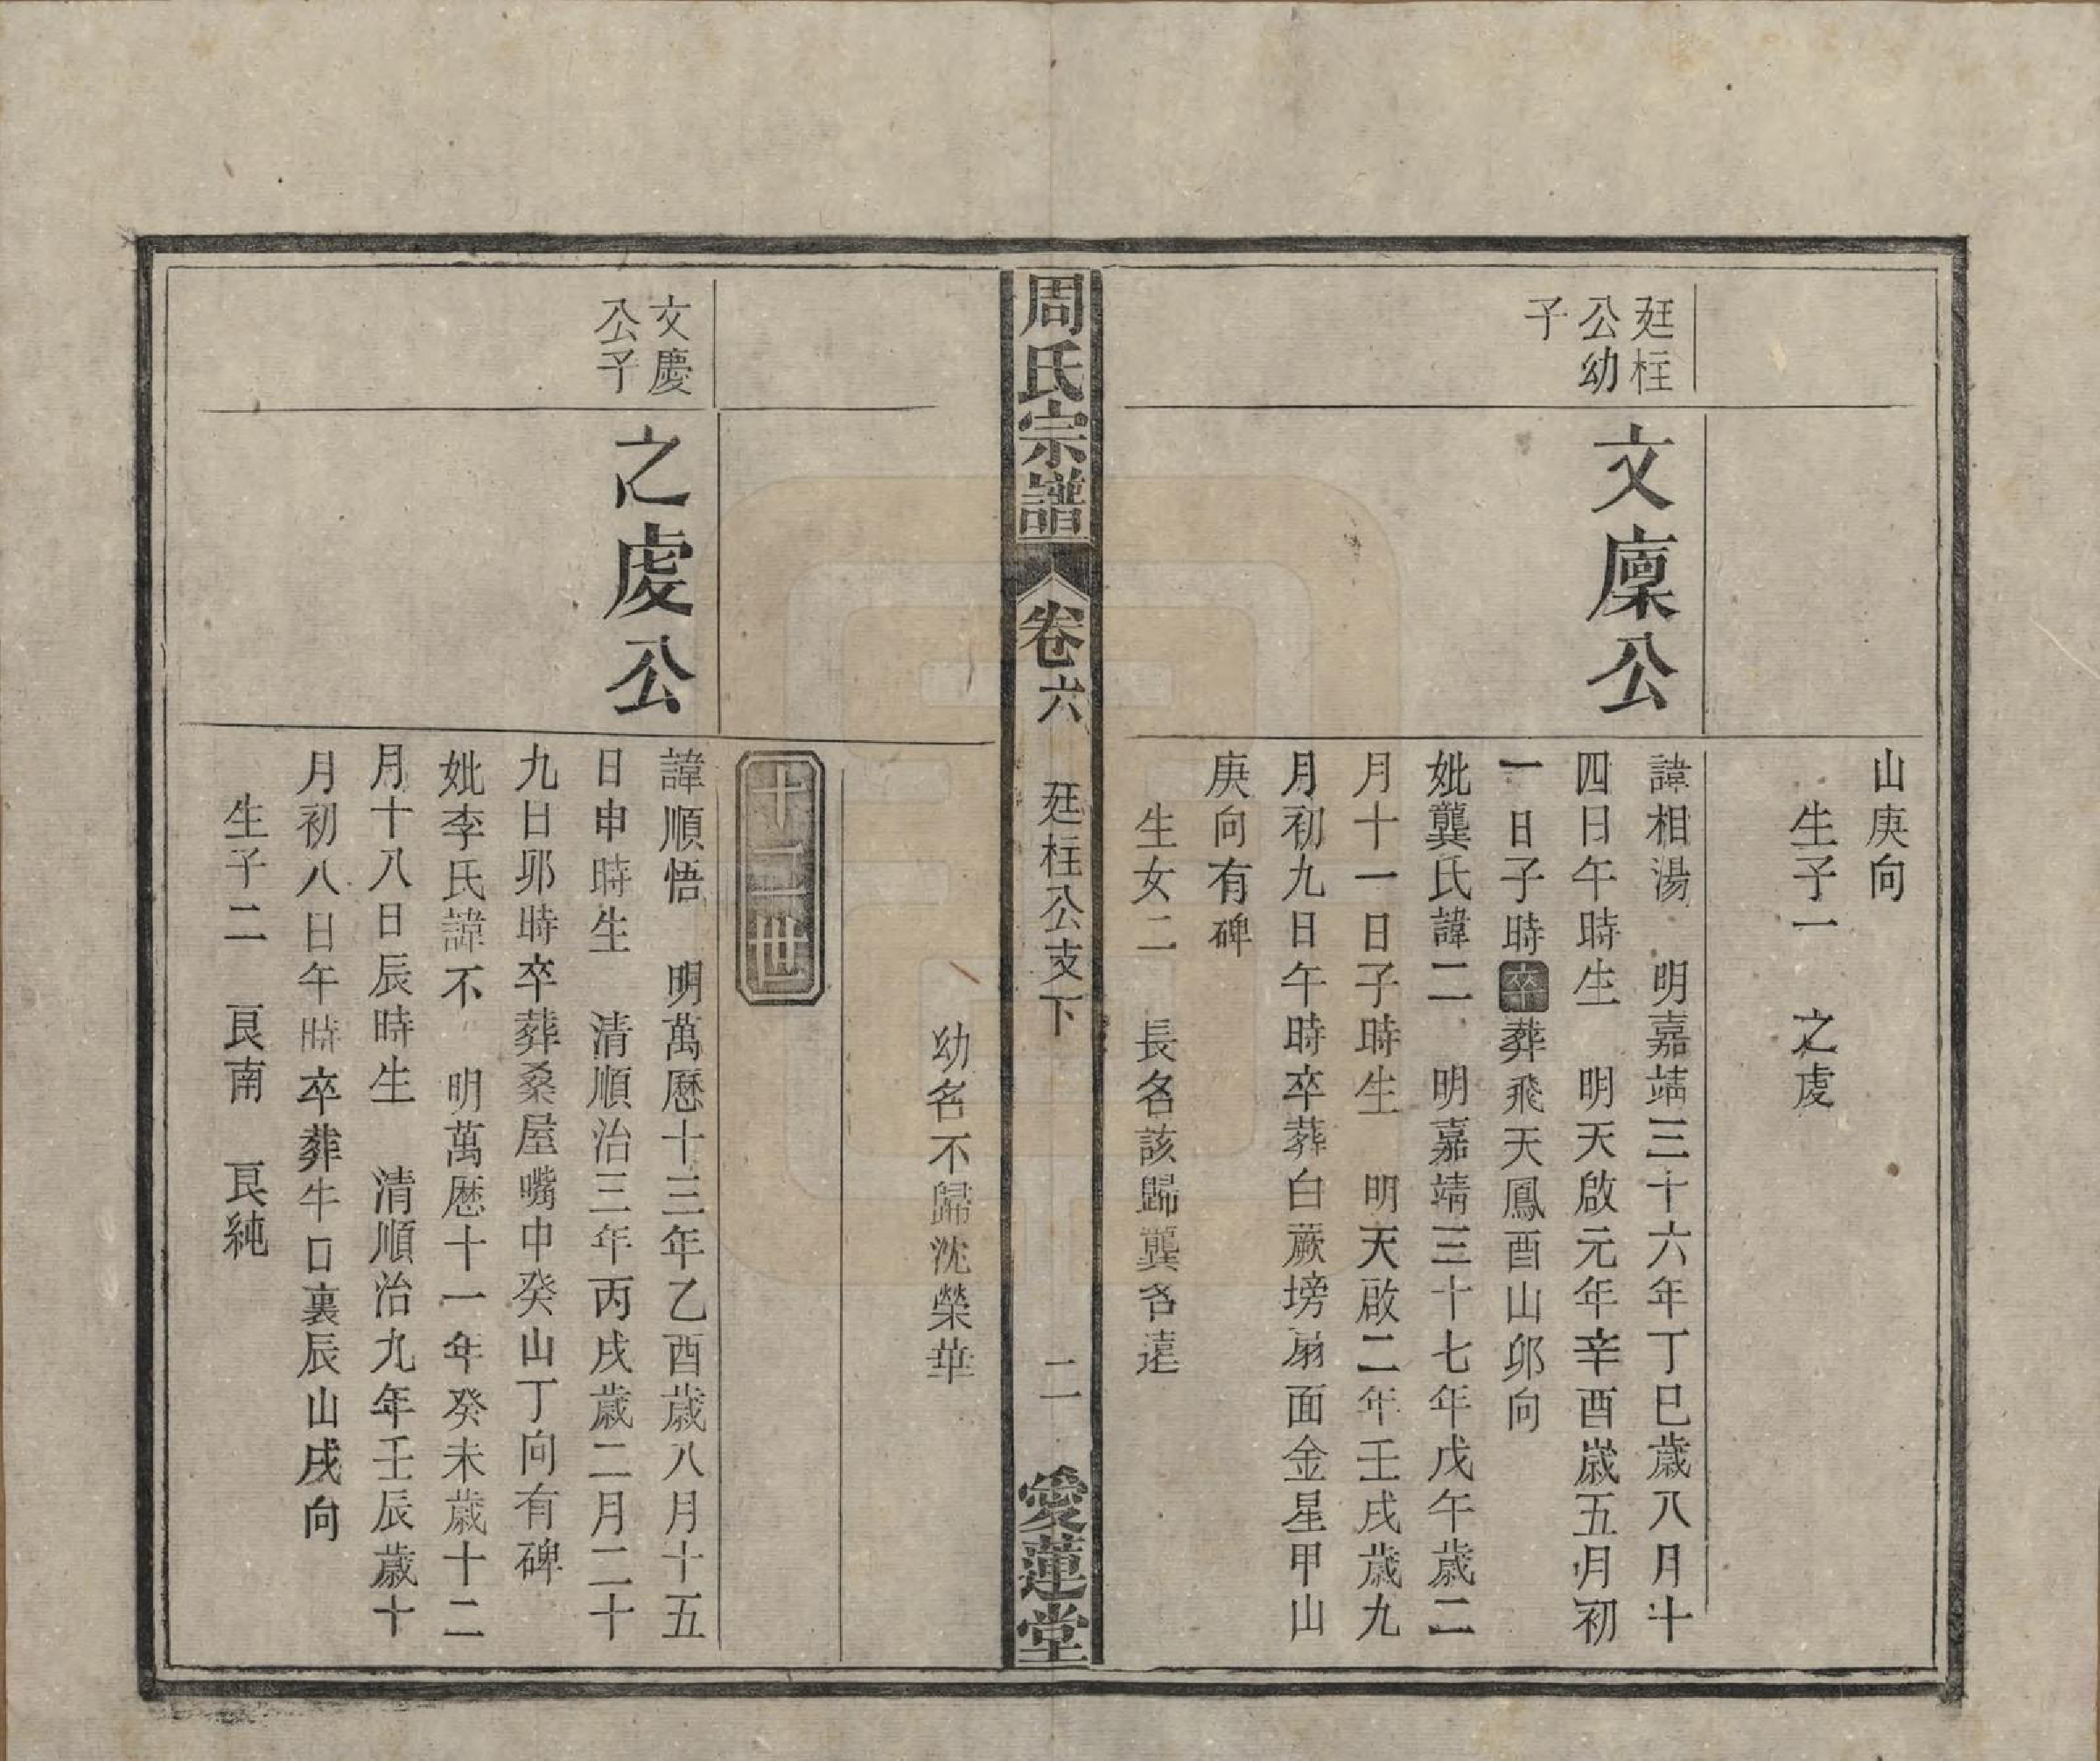 山庚向
生子一　之虔
廷柱
公幼
子
文廩公
諱相湯　明嘉靖三十六年丁巳歲八月十
四日午時生　明天啟元年辛酉歲五月初
一日子時卒葬飛天鳳酉山卯向
妣龔氏諱二　明嘉靖三十七年戊午歲二
月十一日子時生　明天啟二年壬戌歲九
月初九日午時卒葬白蕨塝扇面金星甲山
庚向有碑
生女二　長名該歸龔各遠
周氏宗譜　卷六　廷柱公支下　二　愛蓮堂
幼名不歸沈榮華
十二世
文慶
公子
之虔公
諱順悟　明萬曆十三年乙酉歲八月十五
日申時生　清順治三年丙戌歲二月二十
九日卯時卒葬桑屋嘴中癸山丁向有碑
妣李氏諱不　明萬歷十一年癸未歲十二
月十八日辰時生　清順治九年壬辰歲十
月初八日午時卒葬牛口裏辰山戌向
生子二　艮南　艮純